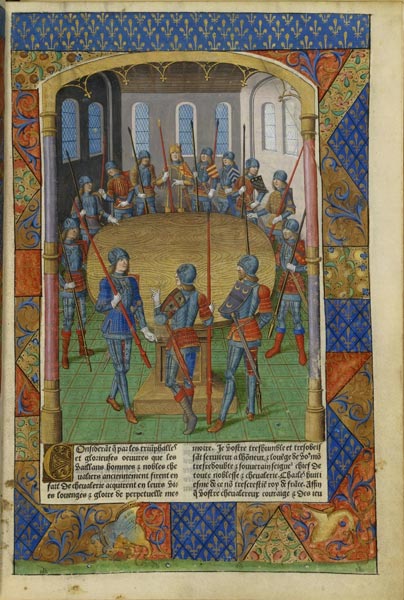 Considerāt q̄ par les triūphalles
et glorieuses oeuures que les
vaillans hommes & nobles che
ualiers anciennement firent en
fait de cheualerie acquirent en leurs vie
en louenges & gloire de perpetuelle me
moire. Je vostre treshumble et tresobeis
sāt seruiteur a lhōneur & louēge de vo⁹ mō
tresredoubte & souuerain seigne² chief de
toute noblesse & cheualerie Charles huit
iesme de ce nō trescrestiē roy de frāce. Affin
q̄ vostre cheuallereux couraige & des